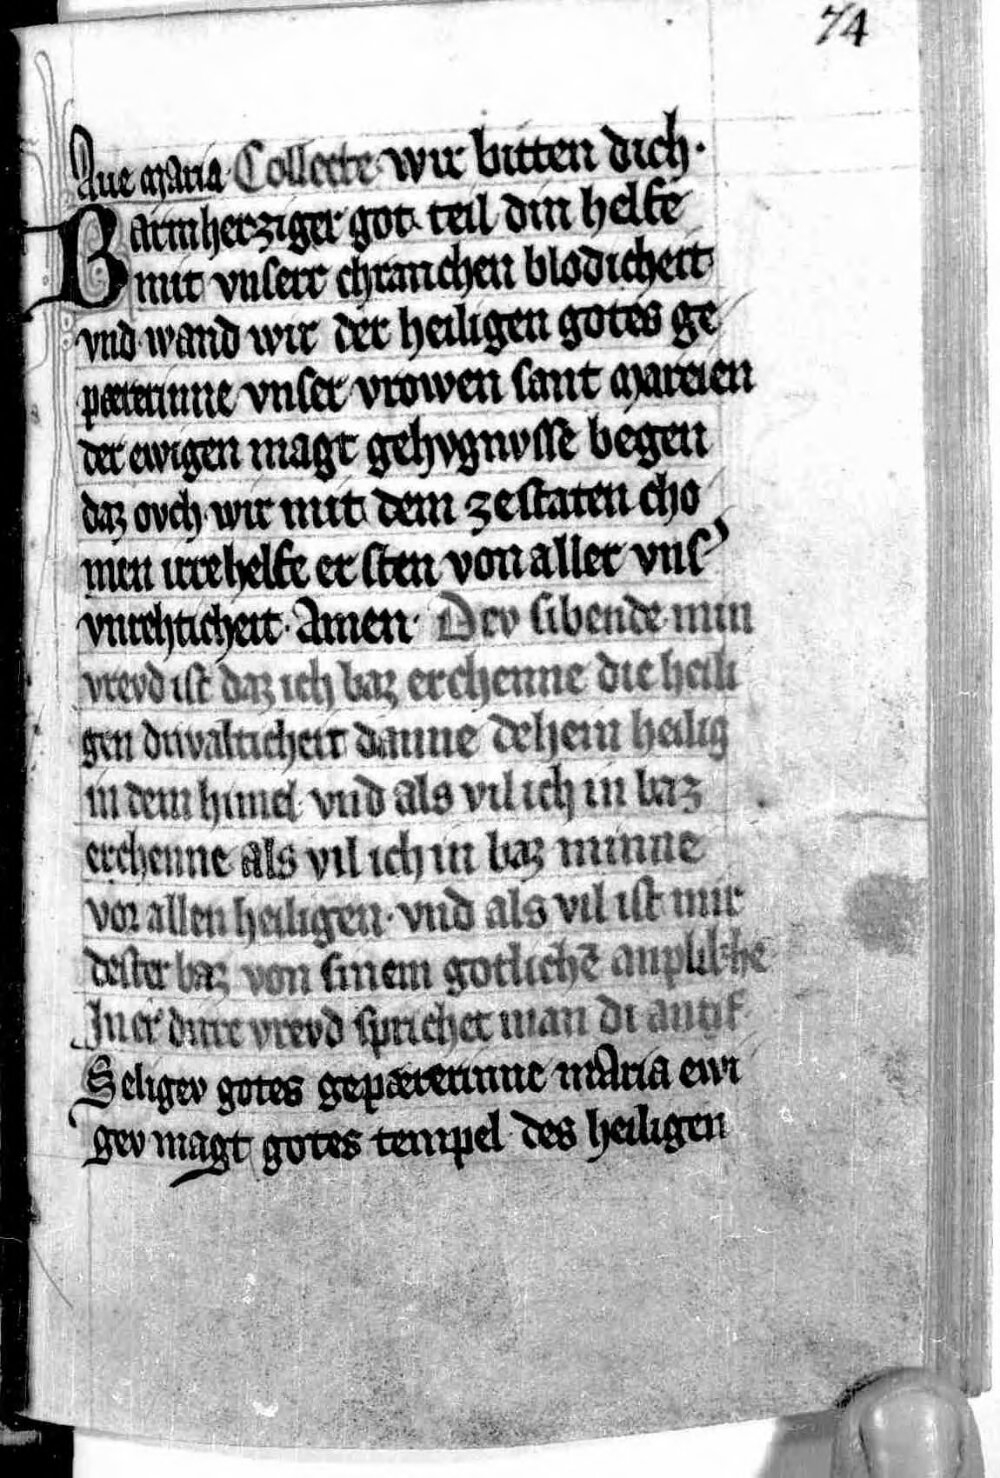 74
Aue maria Collecte wir bitten dich·
Barmherziger got teil din helfe
mit vnserr chranchen blodicheit
vnd wand wir der heiligen gotes ge
pærerinne vnser vrowen sant mareien
der ewigen magt gehvgnvsse begen
daz ovch wir mit dem ze staten cho
men irre helfe er sten von aller vns᾽
vnrehticheit· Amen· Dev sibende min
vrevd ist daz ich baz erchenne die heili
gen drivalticheit danne dehein heilig
in dem himel· vnd als vil ich in baz
erchenne als vil ich in baz minne
vor allen heiligen· vnd als vil ist mir
dester baz von sinem gotlichē anpliche
In er dirre vrevd sprichet man di antif·
Seligev gotes gepærerinne maria ewi
gev magt gotes tempel des heiligen